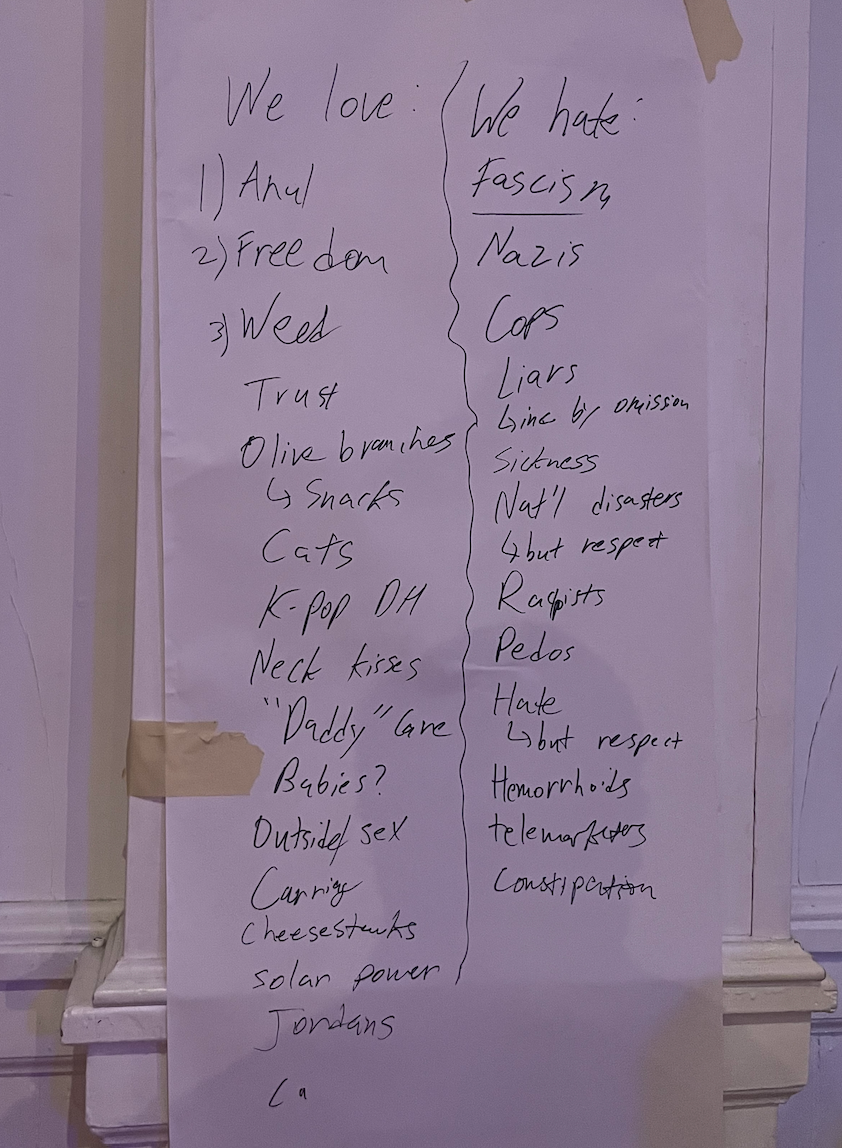 We love:
1) Anul
2) Freedom
3) Weed
Trust
Olive branches
↳ Snacks
Cats
K-pop DH
Neck kisses
"Daddy" Care
Babies?
Outside/sex
Carring
Cheesesteaks
solar power
Jordans
Ca
We hate:
Fascism
Nazis
Cops
Liars
↳ inc by omission
Sickness
Nat'l disasters
↳ but respect
Rapists
Pedos
Hate
↳ but respect
Hemorrhoids
telemarketers
Constipation